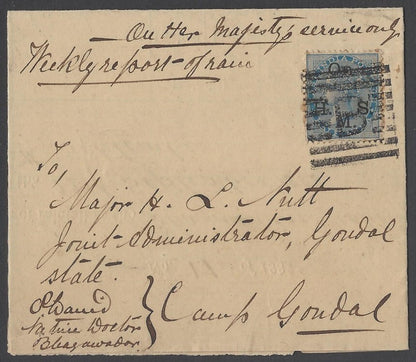 On Her Majesty's service only
Weekly report of rain
INDIA POSTAGE
O
H. S.
M.
To,
Major H. L. Nutt
Joint-Administrator, Gondal
state.
Camp Gondal
Native Doctor
Bhayawadar